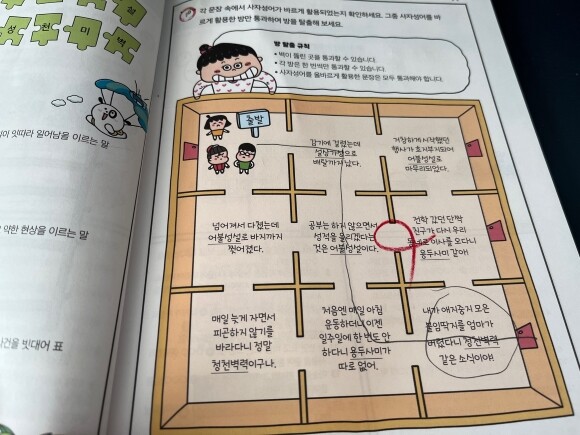 설
상 천 미 벽
이 잇따라 일어남을 이르는 말
약한 현상을 이르는 말
사건을 빗대어 표
각 문장 속에서 사자성어가 바르게 활용되었는지 확인하세요. 그중 사자성어를 바
르게 활용한 방만 통과하여 방을 탈출해 보세요.
방 탈출 규칙
• 벽이 뚫린 곳을 통과할 수 있습니다.
• 각 방은 한 번씩만 통과할 수 있습니다.
• 사자성어를 올바르게 활용한 문장은 모두 통과해야 합니다.
출발
감기에 걸렸는데
설상가상으로
배탈까지 났다.
거창하게 시작했던
행사가 흐지부지되어
어불성설로
마무리되었다.
넘어져서 다쳤는데
어불성설로 바지까지
찢어졌다.
공부는 하지 않으면서
성적을 올리겠다는
것은 어불성설이다.
전학 갔던 단짝
친구가 다시 우리
이사를 오다니
용두사미 같아!
매일 늦게 자면서
피곤하지 않기를
바라다니 정말
청천벽력이구나.
처음엔 매일 아침
운동하더니 이젠
일주일에 한 번도 안
하다니 용두사미가
따로 없어.
내가 애지중지 모은
붙임딱지를 엄마가
버렸다니 청천벽력
같은 소식이야!